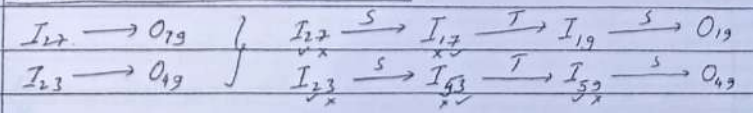 I₂₇ ⟶ O₇₉ } I₂₇ —S→ I₁₇ —T→ I₁₉ —S→ O₁₉
✓ × × ✓
I₂₃ ⟶ O₄₉ I₂₃ —S→ I₅₃ —T→ I₅₉ —S→ O₄₉
✓ × × ✓ ✓ ×